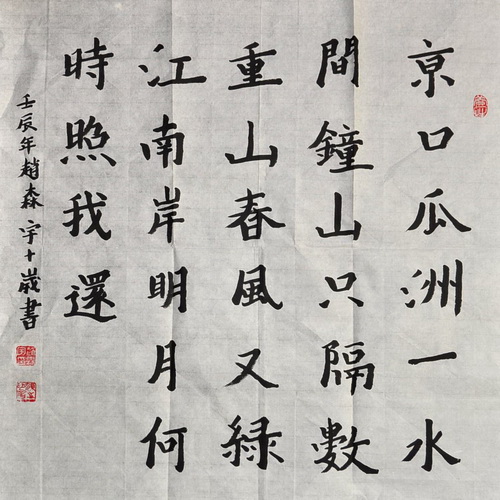 京口瓜洲一水
間鐘山只隔數
重山春風又緑
江南岸明月何
時照我還
壬辰年趙森宇十歲書